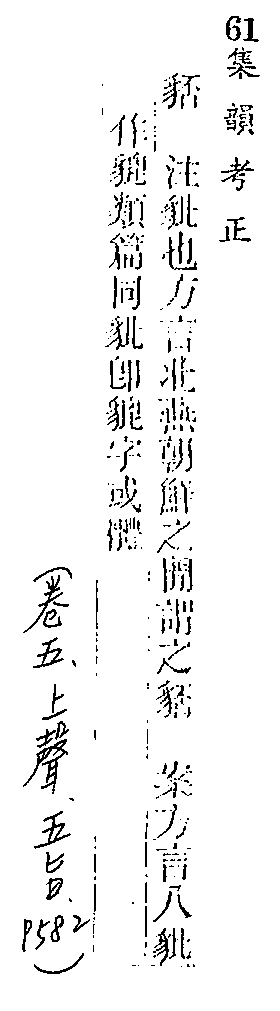 61 集韻考正
注豼也方言北燕朝鮮之間謂之 案方言八豼
作貔類篇同豼即貔字或體
(卷五、上聲、五旨、P582)